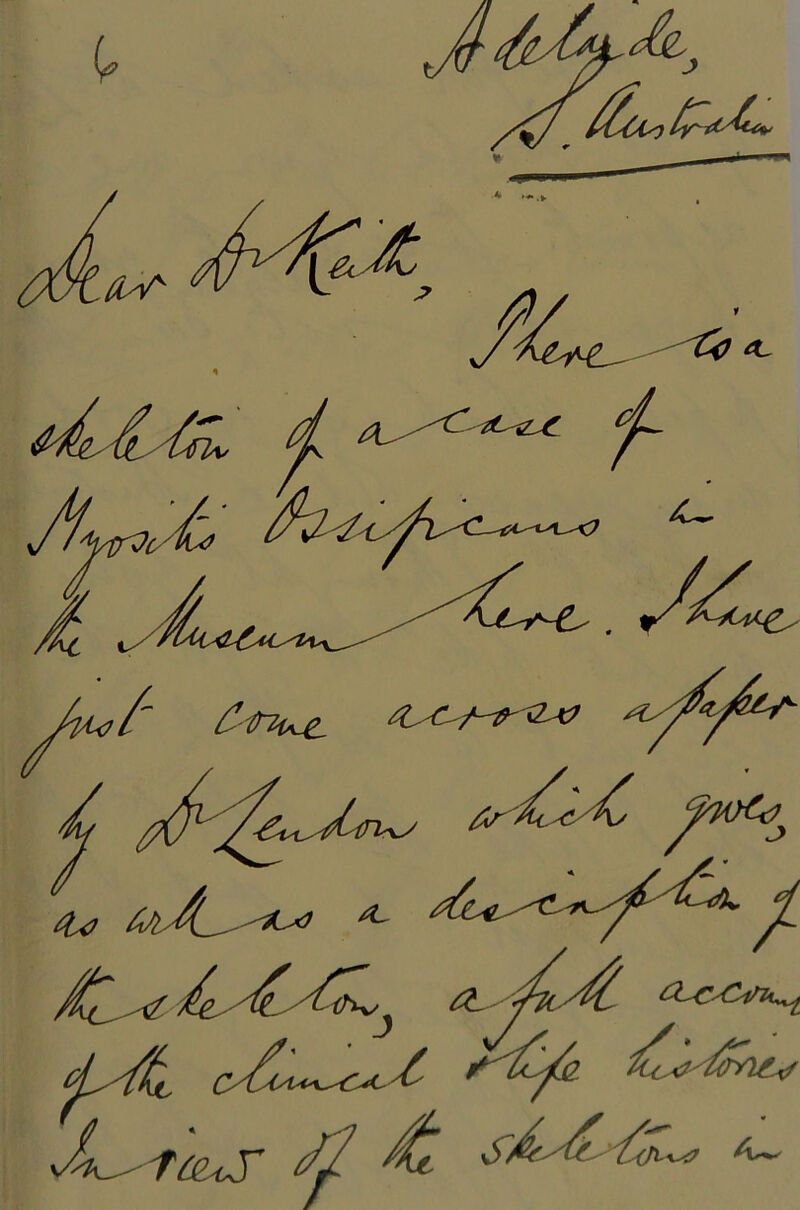 6
Adelaide,
S. Australia
Dear Dr Keith,
There is a
skeleton of a case of
Myositis Ossificans in
the Museum here. I have
just come across a paper
by Dr Lendon which gives,
as well as a description of
the skeleton, a full account
of the clinical & life histories
In view of the skeletons in